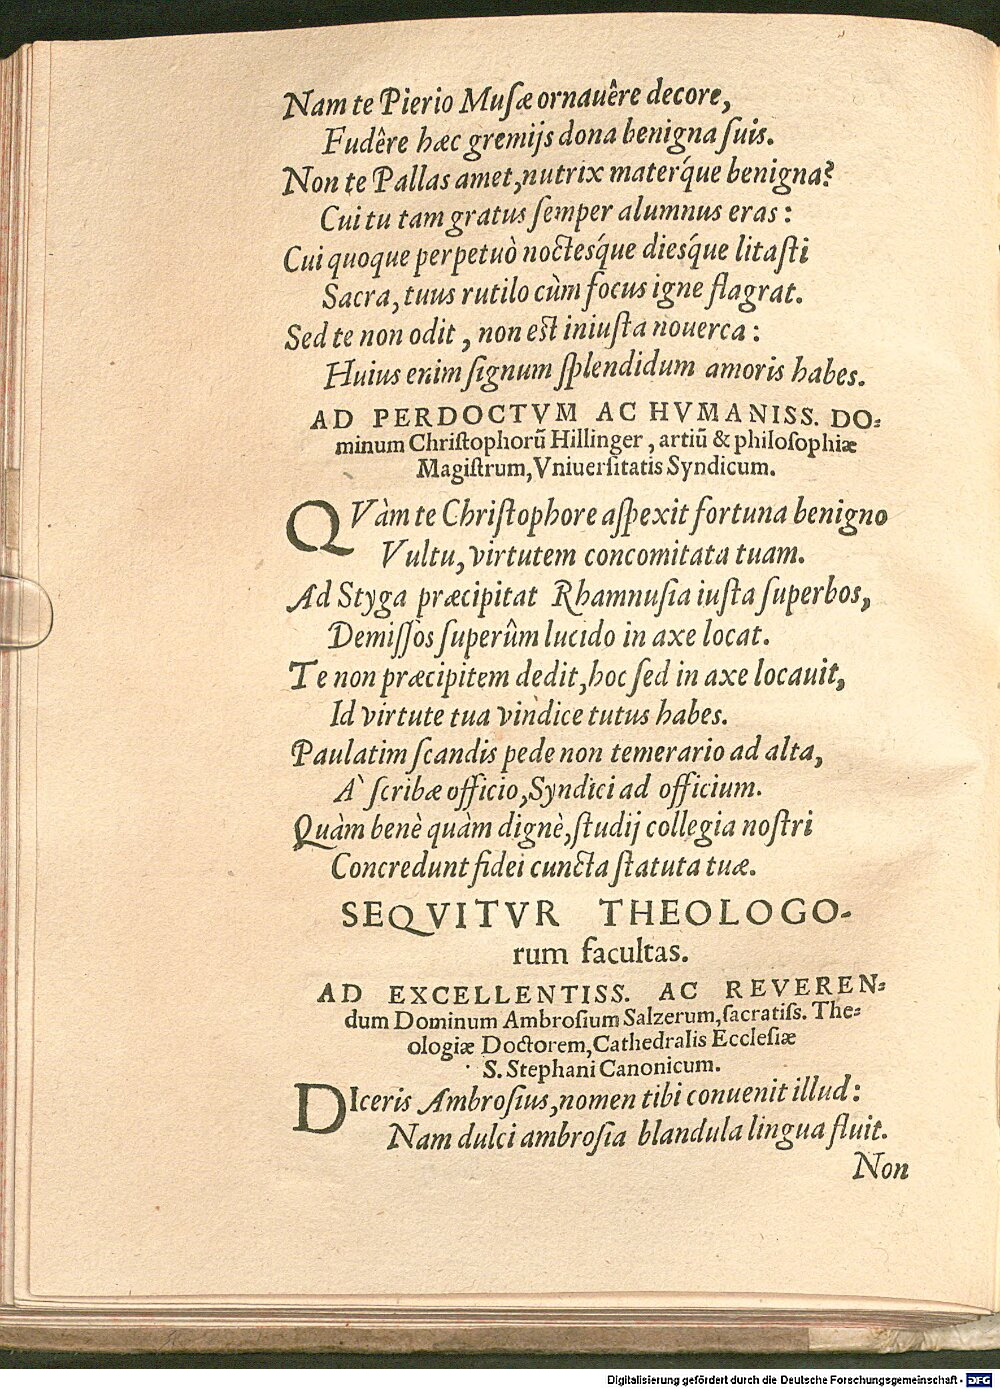 Nam te Pierio Musæ ornauêre decore,
Fudêre hæc gremijs dona benigna suis.
Non te Pallas amet, nutrix materq́ue benigna?
Cui tu tam gratus semper alumnus eras:
Cui quoque perpetuò noctesq́ue diesq́ue litasti
Sacra, tuus rutilo cùm focus igne flagrat.
Sed te non odit, non est iniusta nouerca:
Huius enim signum splendidum amoris habes.
AD PERDOCTVM AC HVMANISS. DO-
minum Christophorũ Hillinger, artiũ & philosophiæ
Magistrum, Vniuersitatis Syndicum.
QVàm te Christophore aspexit fortuna benigno
Vultu, virtutem concomitata tuam.
Ad Styga præcipitat Rhamnusia iusta superbos,
Demissos superûm lucido in axe locat.
Te non præcipitem dedit, hoc sed in axe locauit,
Id virtute tua vindice tutus habes.
Paulatim scandis pede non temerario ad alta,
A` scribæ officio, Syndici ad officium.
Quàm benè quàm dignè, studij collegia nostri
Concredunt fidei cuncta statuta tuæ.
SEQVITVR THEOLOGO-
rum facultas.
AD EXCELLENTISS. AC REVEREN-
dum Dominum Ambrosium Salzerum, sacratiss. The-
ologiæ Doctorem, Cathedralis Ecclesiæ
S. Stephani Canonicum.
DIceris Ambrosius, nomen tibi conuenit illud:
Nam dulci ambrosia blandula lingua fluit.
Non
Digitalisierung gefördert durch die Deutsche Forschungsgemeinschaft - DFG